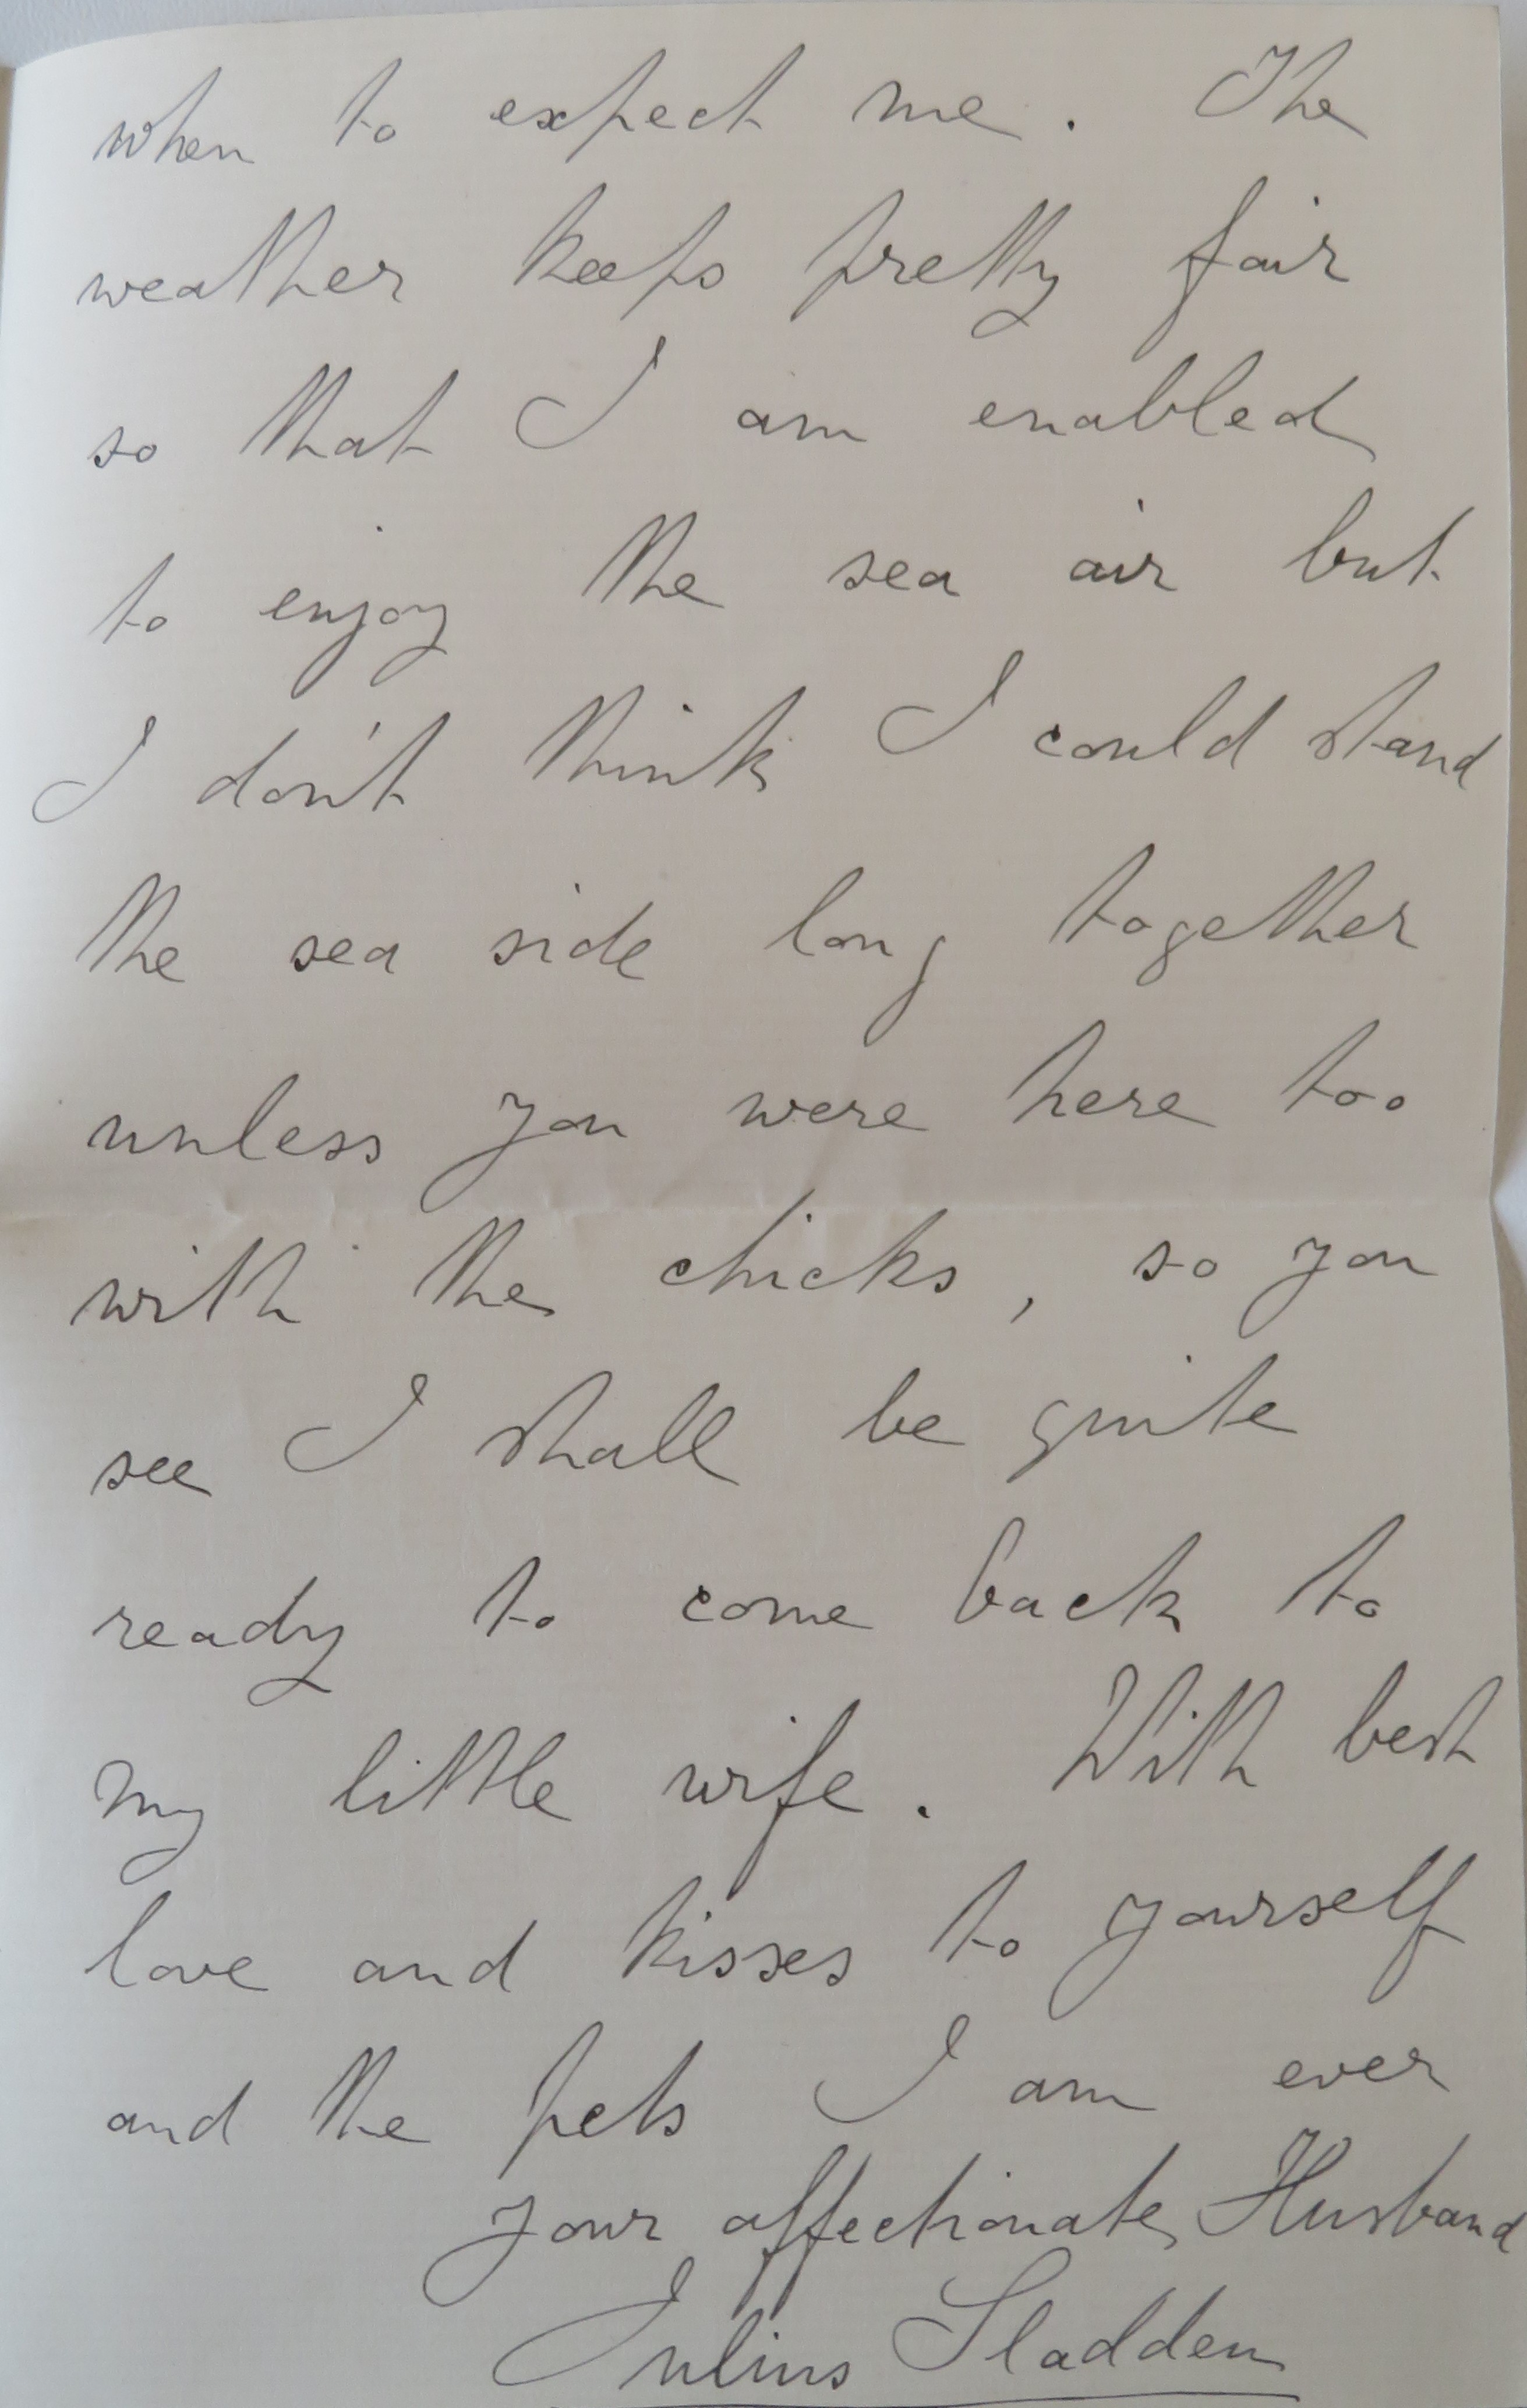 when to expect me. The
weather keeps pretty fair
so that I am enabled
to enjoy the sea air but
I don't think I could stand
the sea side long together
unless you were here too
with the chicks, so you
see I shall be quite
ready to come back to
my little wife. With best
love and kisses to yourself
and the pets I am ever
your affectionate Husband
Julius Sladden